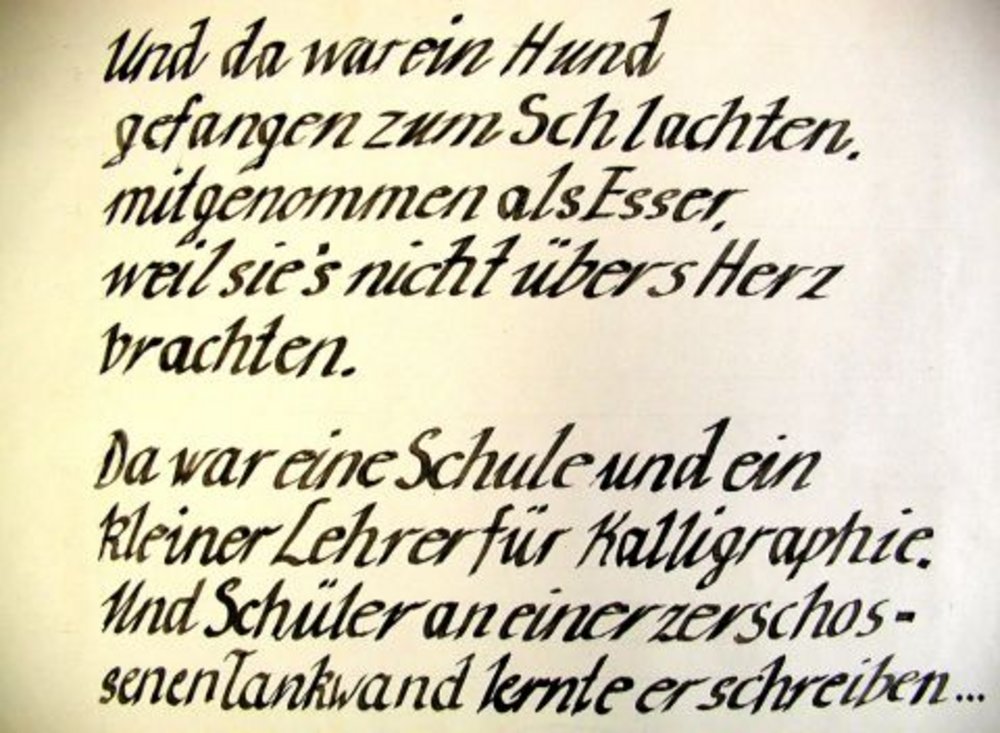 Und da war ein Hund
gefangen zum Schlachten.
mitgenommen als Esser,
weil sie's nicht übers Herz
brachten.
Da war eine Schule und ein
kleiner Lehrer für Kalligraphie.
Und Schüler an einer zerschos-
senen Tankwand lernte er schreiben...